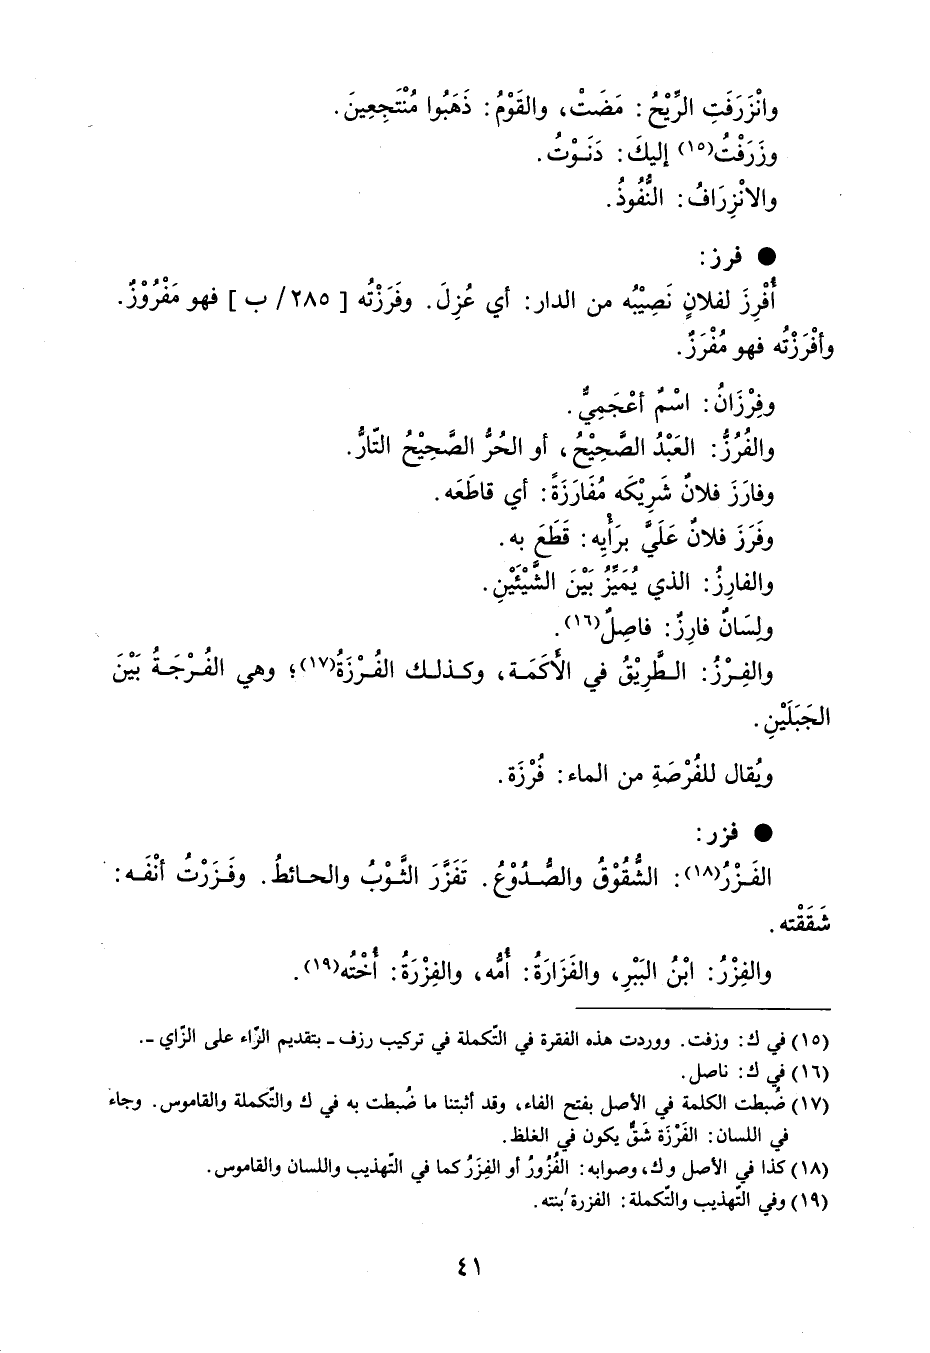 وانْزَرَفَتِ الرِّيْحُ: مَضَتْ، والقَوْمُ: ذَهَبُوا مُنْتَجِعِينَ.
وزَرَفْتُ(١٥) إليكَ: دَنَوْتُ.
والانْزِرَافُ: النُّفُوذُ.
● فرز:
أُفْرِزَ لفلانٍ نَصِيْبُه من الدار: أي عُزِلَ. وفَرَزْتُه [ ٢٨٥/ ب ] فهو مَفْرُوْزٌ.
وأفْرَزْتُه فهو مُفْرَزٌ.
وفِرْزَانُ: اسْمٌ أعْجَمِيٌّ.
والفُرُزُّ: العَبْدُ الصَّحِيْحُ، أو الحُرُّ الصَّحِيْحُ التّارُّ.
وفارَزَ فلانٌ شَرِيْكَه مُفَارَزَةً: أي قاطَعَه.
وفَرَزَ فلانٌ عَلَيَّ برَأْيِه: قَطَعَ به.
والفارِزُ: الذي يُمَيِّزُ بَيْنَ الشَّيْئَيْنِ.
ولِسَانٌ فارِزٌ: فاصِلٌ(١٦).
والفِرْزُ: الطَّرِيْقُ في الأَكَمَة، وكذلك الفُرْزَةُ(١٧)؛ وهي الفُرْجَةُ بَيْنَ
الجَبَلَيْنِ.
ويُقال للفُرْصَةِ من الماء: فُرْزَة.
● فزر:
الفَزْرُ(١٨): الشُّقُوْقُ والصُّدُوْعُ. تَفَزَّرَ الثَّوْبُ والحائطُ. وفَزَرْتُ أنْفَه:
شَقَقْته.
والفِزْرُ: ابْنُ البَبْرِ، والفَزَارَةُ: أُمُّه، والفِزْرَةُ: أُخْتُه(١٩).
(١٥) في ك: وزفت. ووردت هذه الفقرة في التّكملة في تركيب رزف ـ بتقديم الرّاء على الزّاي ـ.
(١٦) في ك: ناصل.
(١٧) ضُبطت الكلمة في الأصل بفتح الفاء، وقد أثبتنا ما ضُبطت به في ك والتّكملة والقاموس. وجاء
في اللسان: الفَرْزَة شَقٌّ يكون في الغلظ.
(١٨) كذا في الأصل وك، وصوابه: الفُزُورُ أو الفِزَرُ كما في التّهذيب واللسان والقاموس.
(١٩) وفي التّهذيب والتّكملة: الفزرة بنته.
٤١